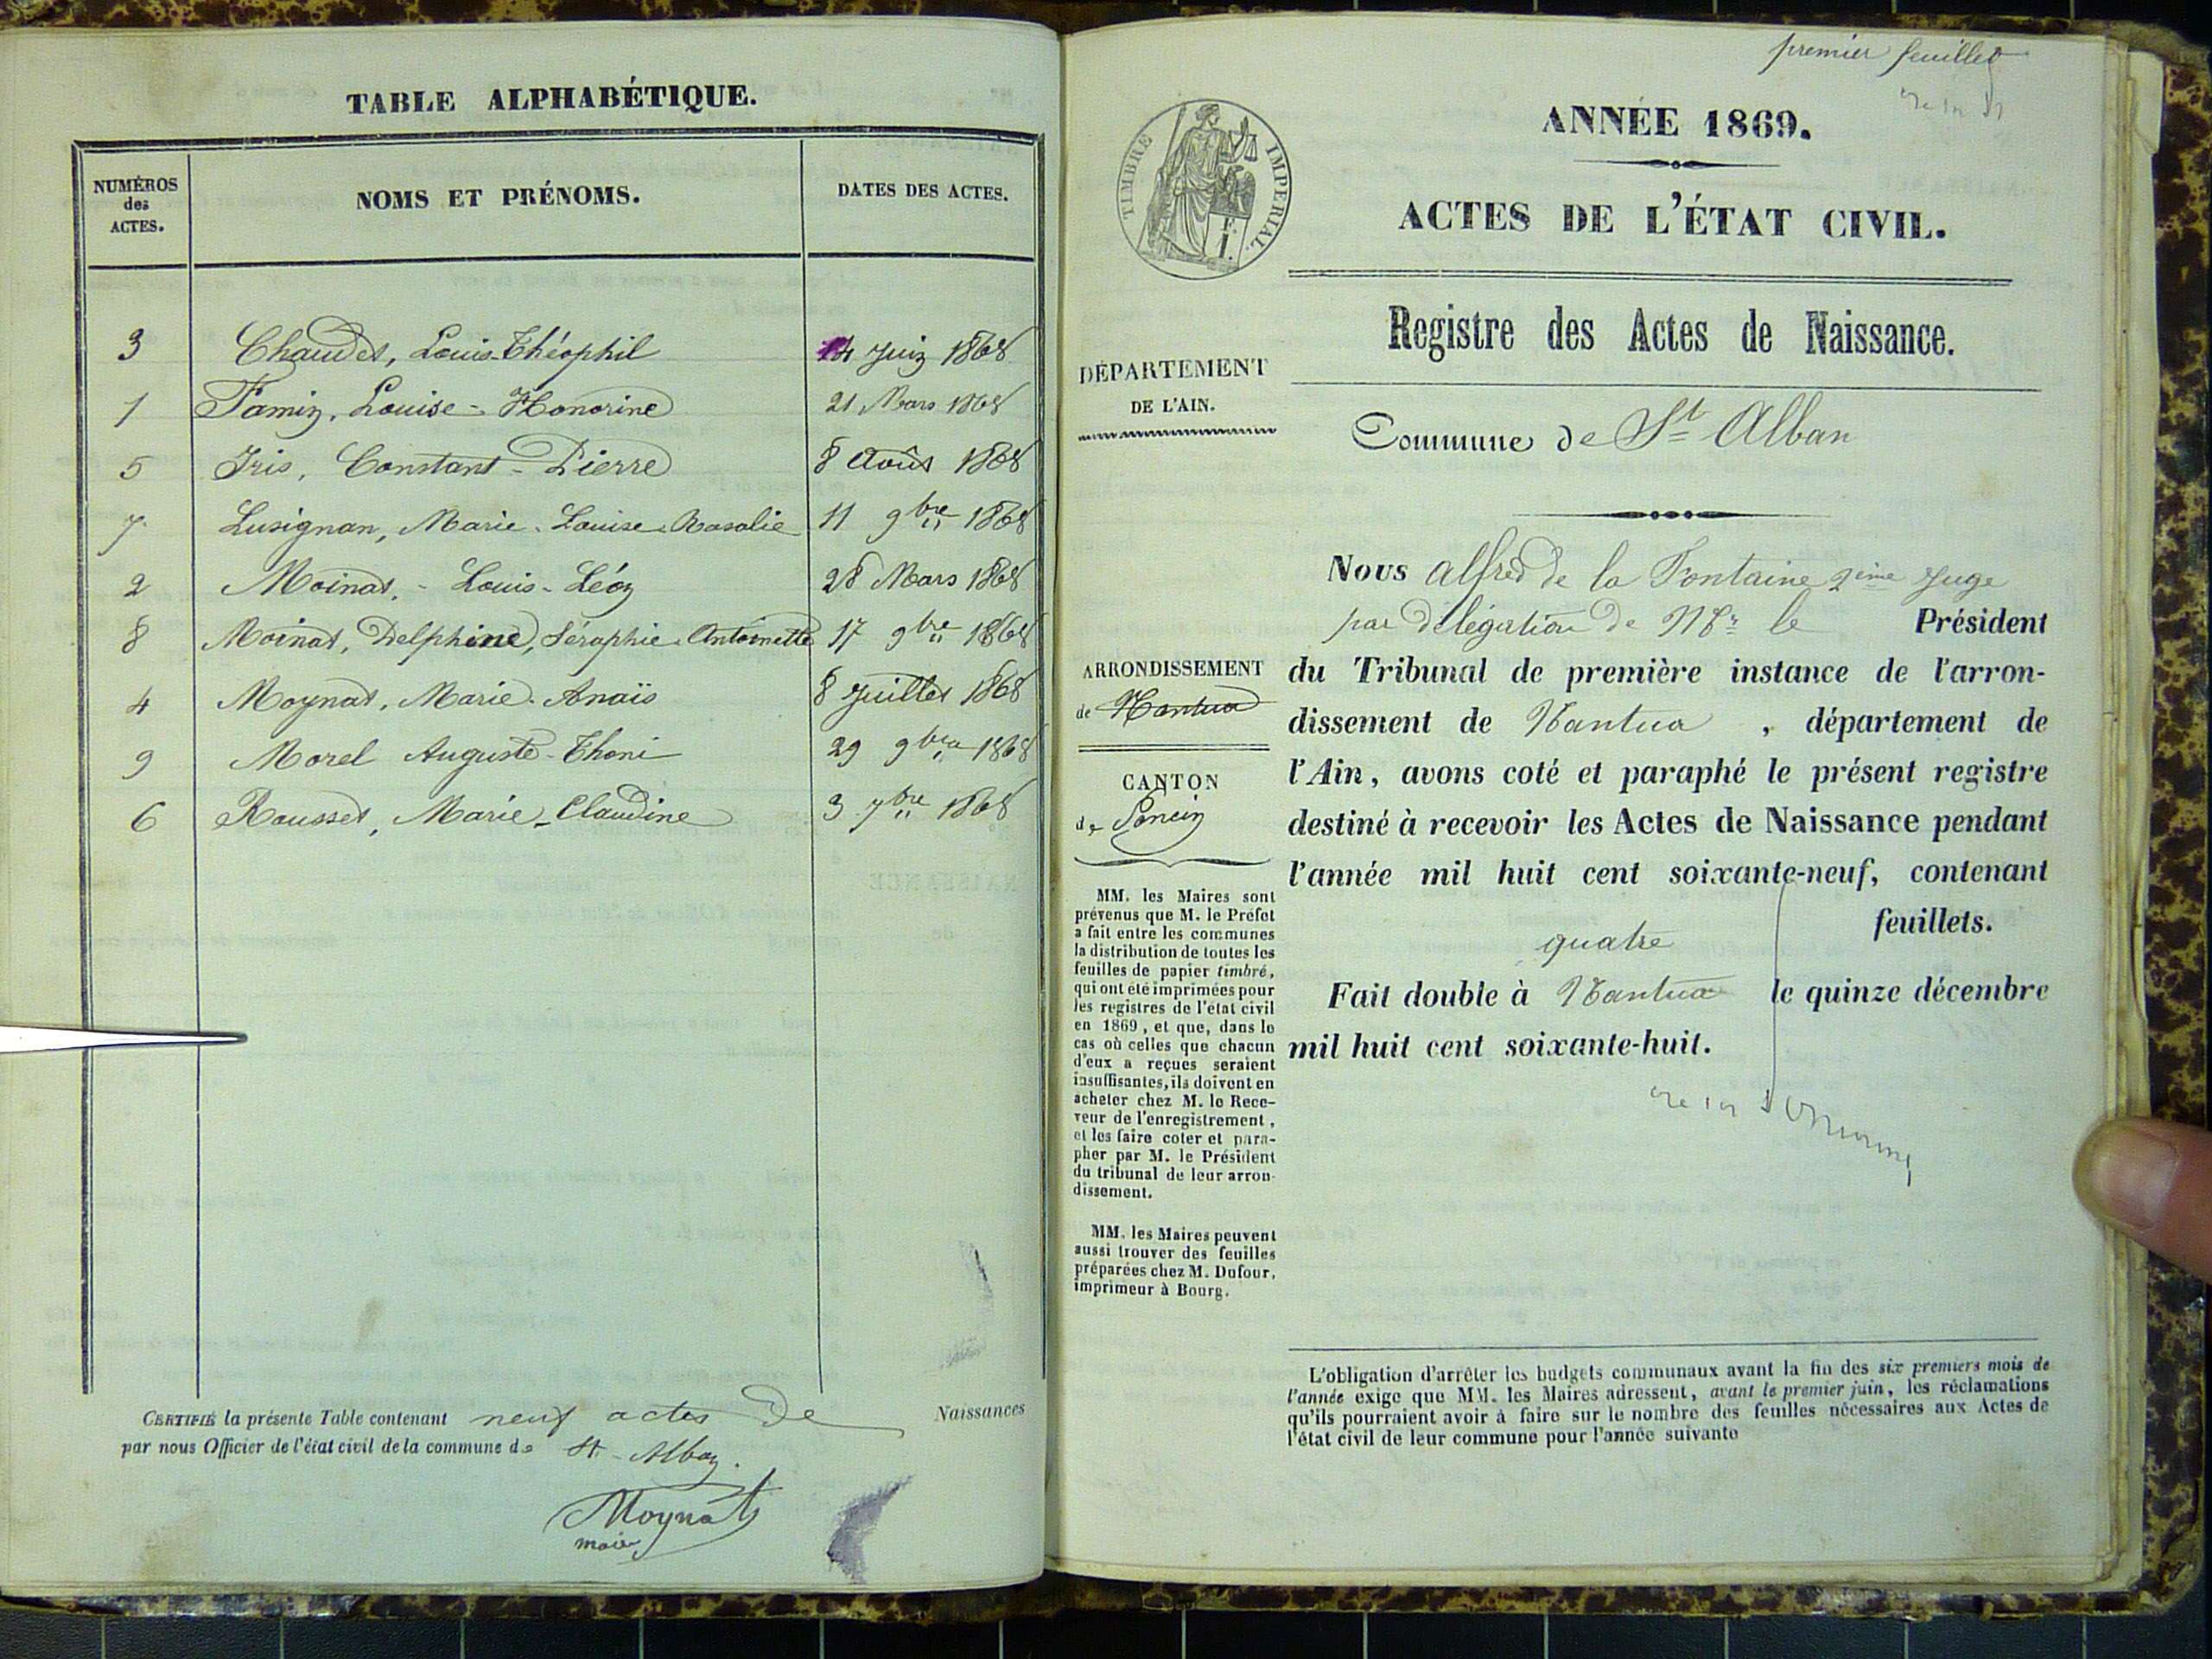 TABLE ALPHABÉTIQUE.
NUMÉROS des ACTES.
NOMS ET PRÉNOMS.
DATES DES ACTES.
3 Chaudet, Louis-Théophil 14 Juin 1868
1 Famin, Louise-Honorine 21 Mars 1868
5 Iris, Constant-Pierre 8 Août 1868
7 Lusignan, Marie-Louise-Rosalie 11 9bre 1868
2 Moinat, - Louis-Léon 28 Mars 1868
8 Moinat, Delphine, Séraphie-Antoinette 17 9bre 1868
4 Moynat, Marie-Anaïs 8 Juillet 1868
9 Morel Auguste-Thoni 29 9bre 1868
6 Rousset, Marie-Claudine 3 7bre 1868
CERTIFIÉ la présente Table contenant neuf actes de Naissances
par nous Officier de l'état civil de la commune de St-Alban.
Moynat
maire
premier feuillet
ANNÉE 1869.
TIMBRE IMPÉRIAL.
ACTES DE L'ÉTAT CIVIL.
Registre des Actes de Naissance.
DÉPARTEMENT
DE L'AIN.
Commune de St Alban
ARRONDISSEMENT
de Nantua
CANTON
de Poncin
Nous Alfred de la Fontaine 2ème Juge
par délégation de Mr le Président
du Tribunal de première instance de l'arron-
dissement de Nantua , département de
l'Ain, avons coté et paraphé le présent registre
destiné à recevoir les Actes de Naissance pendant
l'année mil huit cent soixante-neuf, contenant
quatre feuillets.
Fait double à Nantua le quinze décembre
mil huit cent soixante-huit.
MM. les Maires sont
prévenus que M. le Préfet
a fait entre les communes
la distribution de toutes les
feuilles de papier timbré,
qui ont été imprimées pour
les registres de l'état civil
en 1869, et que, dans le
cas où celles que chacun
d'eux a reçues seraient
insuffisantes, ils doivent en
acheter chez M. le Rece-
veur de l'enregistrement,
et les faire coter et para-
pher par M. le Président
du tribunal de leur arron-
dissement.
MM. les Maires peuvent
aussi trouver des feuilles
préparées chez M. Dufour,
imprimeur à Bourg.
L'obligation d'arrêter les budgets communaux avant la fin des six premiers mois de
l'année exige que MM. les Maires adressent, avant le premier juin, les réclamations
qu'ils pourraient avoir à faire sur le nombre des feuilles nécessaires aux Actes de
l'état civil de leur commune pour l'année suivante